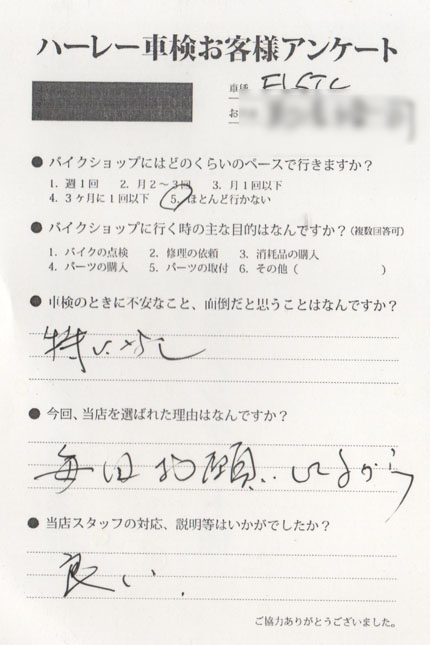 ハーレー車検お客様アンケート
車種 FLSTC
お
● バイクショップにはどのくらいのペースで行きますか？
1. 週1回 2. 月2～3回 3. 月1回以下
4. 3ヶ月に1回以下 5. ほとんど行かない
● バイクショップに行く時の主な目的はなんですか？(複数回答可)
1. バイクの点検 2. 修理の依頼 3. 消耗品の購入
4. パーツの購入 5. パーツの取付 6. その他 ( )
● 車検のときに不安なこと、面倒だと思うことはなんですか？
特になし
● 今回、当店を選ばれた理由はなんですか？
毎回お願いしてるから
● 当店スタッフの対応、説明等はいかがでしたか？
良い.
ご協力ありがとうございました。